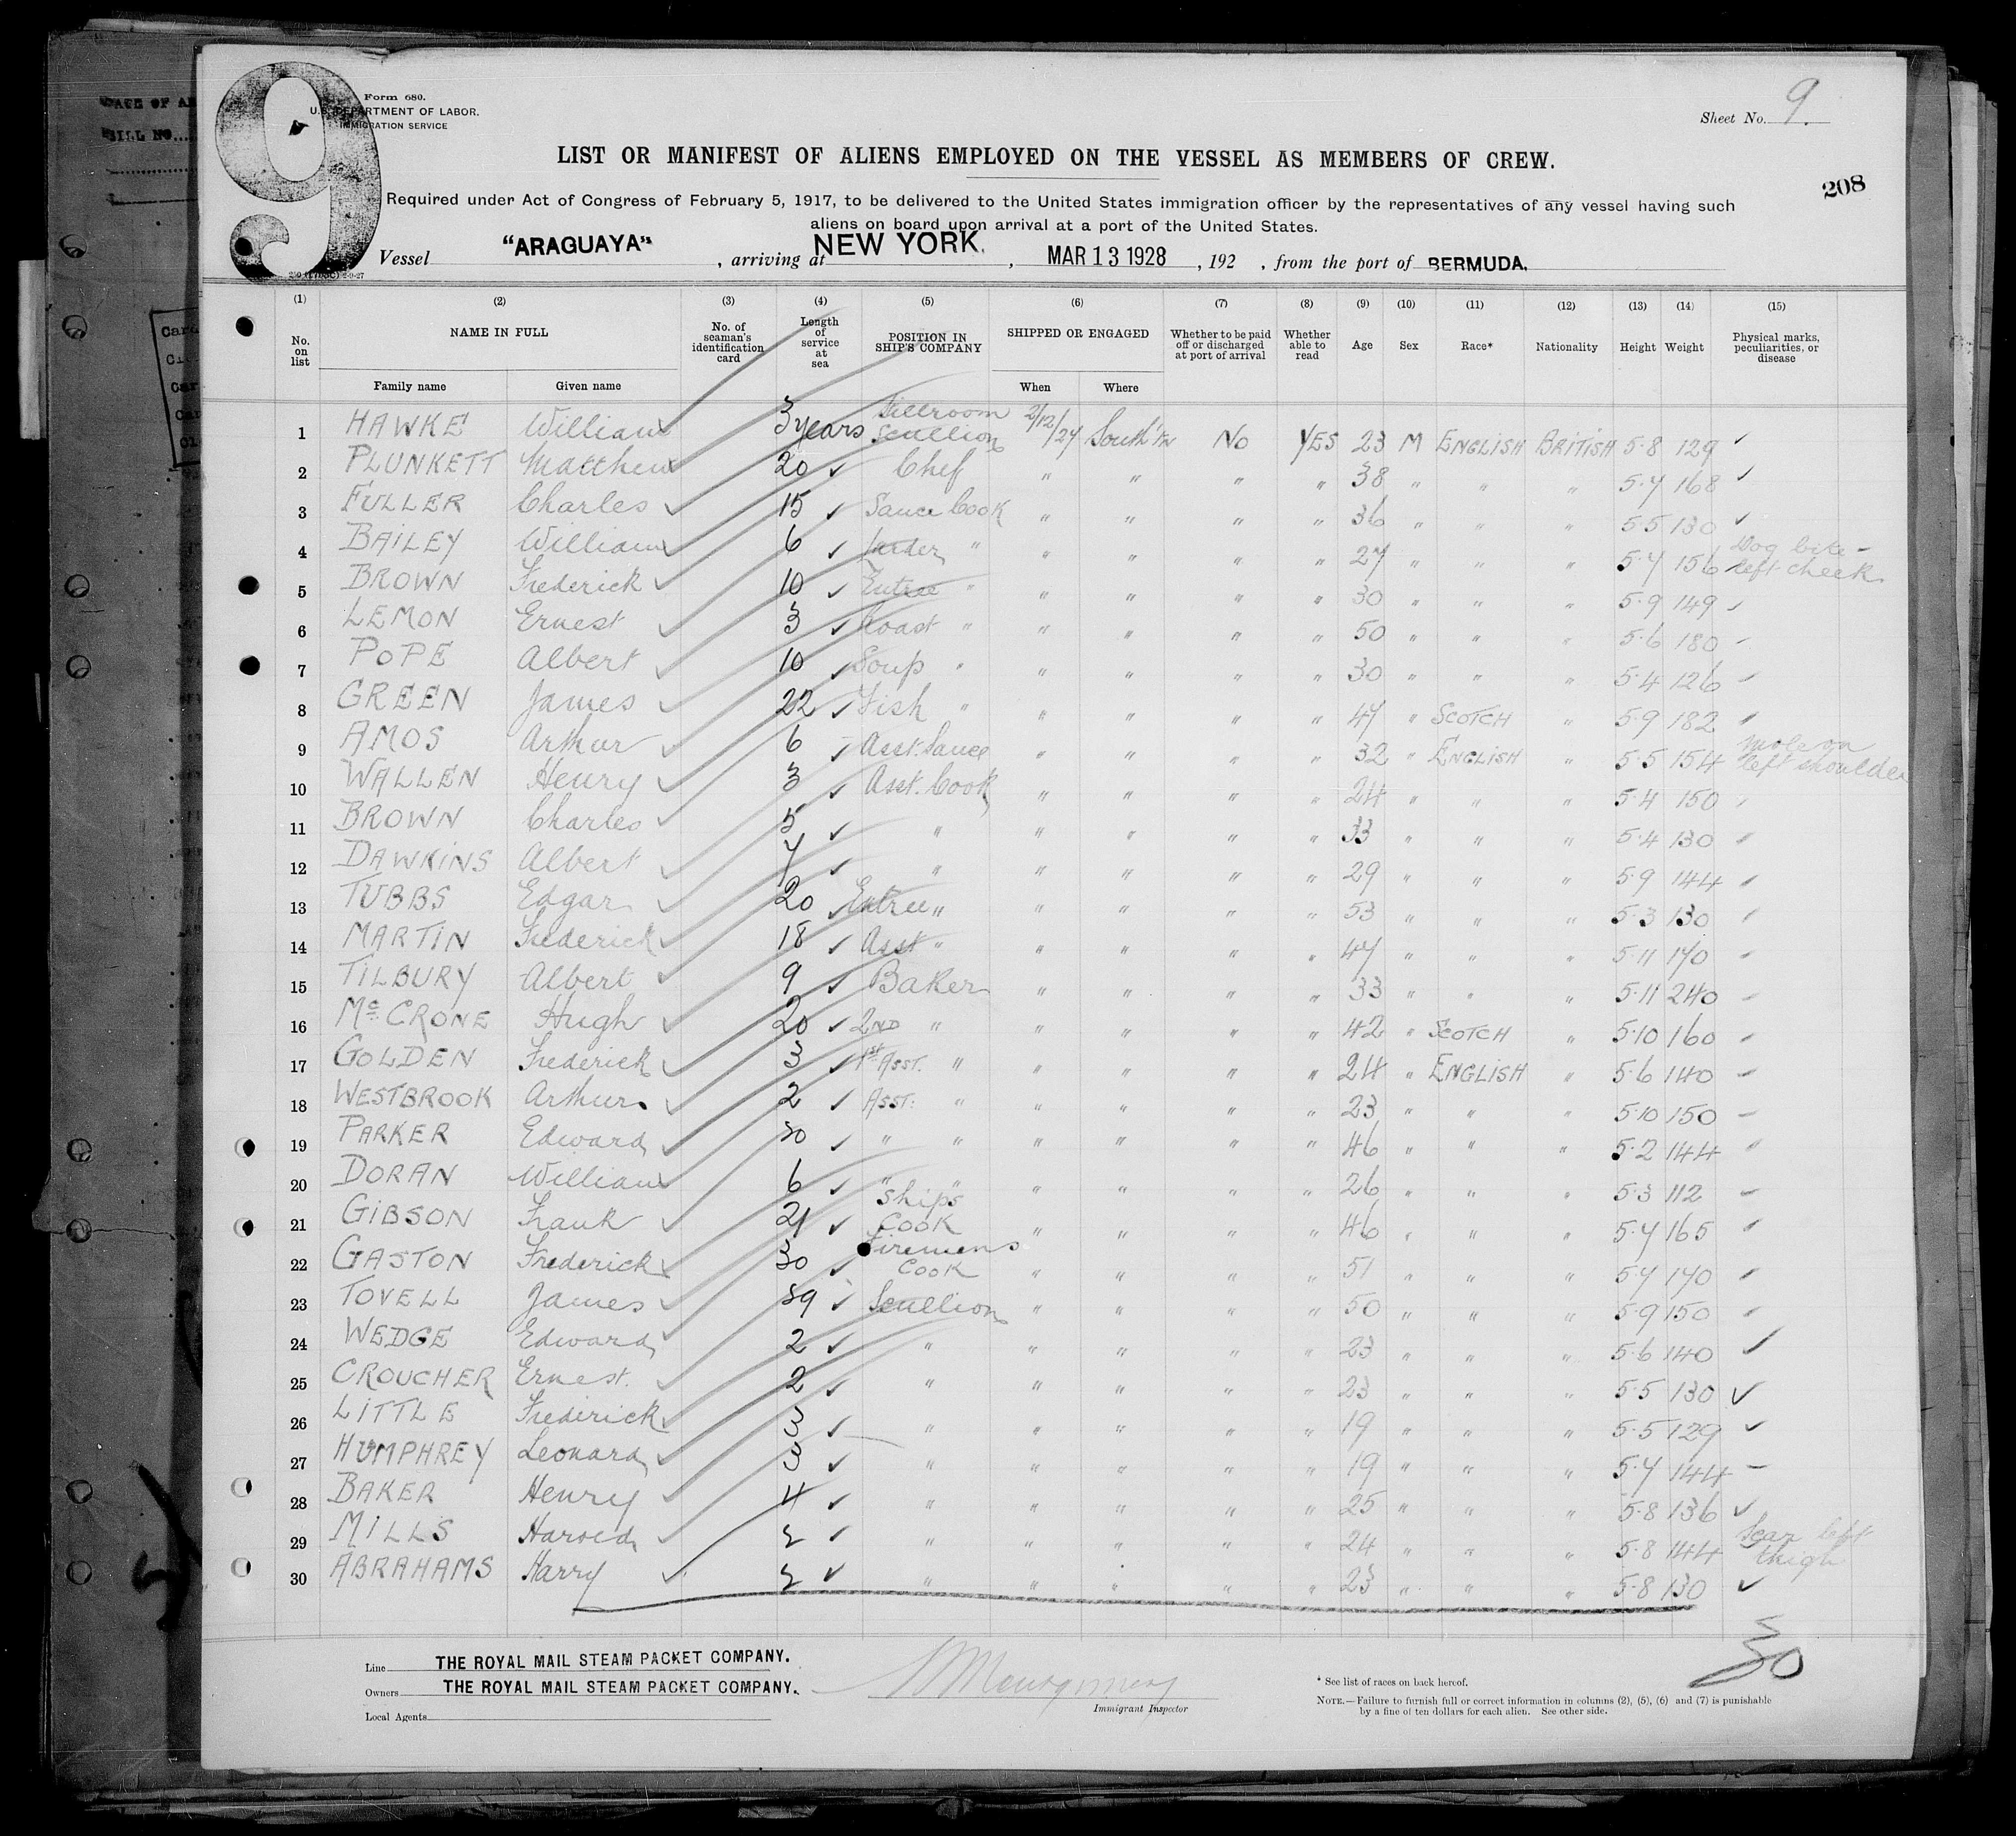 9
Form 680.
U.S. DEPARTMENT OF LABOR,
IMMIGRATION SERVICE
Sheet No. 9.
LIST OR MANIFEST OF ALIENS EMPLOYED ON THE VESSEL AS MEMBERS OF CREW.
208
Required under Act of Congress of February 5, 1917, to be delivered to the United States immigration officer by the representatives of any vessel having such
aliens on board upon arrival at a port of the United States.
Vessel "ARAGUAYA", arriving at NEW YORK, MAR 13 1928, 192 , from the port of BERMUDA.
(1) (2) (3) (4) (5) (6) (7) (8) (9) (10) (11) (12) (13) (14) (15)
No. on list NAME IN FULL Family name Given name No. of seaman's identification card Length of service at sea POSITION IN SHIP'S COMPANY SHIPPED OR ENGAGED When Where Whether to be paid off or discharged at port of arrival Whether able to read Age Sex Race* Nationality Height Weight Physical marks, peculiarities, or disease
1 HAWKE William 3 years Stillroom Scullion 2/12/27 South'tn No YES 23 M ENGLISH BRITISH 5-8 129
2 PLUNKETT Matthew 20 Chef " " " " 38 " " " 5-7 168
3 FULLER Charles 15 Sauce Cook " " " " 36 " " " 5-5 130
4 BAILEY William 6 Larder " " " " " 27 " " " 5-7 156 Dog bite - left cheek
5 BROWN Frederick 10 Entree " " " " " 30 " " " 5-9 149
6 LEMON Ernest 3 Roast " " " " " 50 " " " 5-6 180
7 POPE Albert 10 Soup " " " " " 30 " " " 5-4 126
8 GREEN James 22 Fish " " " " " 47 " SCOTCH " 5-9 182
9 AMOS Arthur 6 Asst. Sauce " " " " 32 " ENGLISH " 5-5 154 Mole on left shoulder
10 WALLEN Henry 3 Asst. Cook " " " " 24 " " " 5-4 150
11 BROWN Charles 5 " " " " " 33 " " " 5-4 130
12 DAWKINS Albert 7 " " " " " 29 " " " 5-9 144
13 TUBBS Edgar 20 Entree " " " " " 53 " " " 5-3 130
14 MARTIN Frederick 18 Asst " " " " " 47 " " " 5-11 170
15 TILBURY Albert 9 Baker " " " " 33 " " " 5-11 240
16 McCRONE Hugh 20 2ND " " " " " 42 " SCOTCH " 5-10 160
17 GOLDEN Frederick 3 1st ASST. " " " " " 24 " ENGLISH " 5-6 140
18 WESTBROOK Arthur 2 ASST. " " " " " 23 " " " 5-10 150
19 PARKER Edward 30 " " " " " " 46 " " " 5-2 144
20 DORAN William 6 " " " " " " 26 " " " 5-3 112
21 GIBSON Frank 21 Ship's Cook " " " " 46 " " " 5-7 165
22 GASTON Frederick 30 Firemens Cook " " " " 51 " " " 5-7 170
23 TOVELL James 39 Scullion " " " " 50 " " " 5-9 150
24 WEDGE Edward 2 " " " " " 23 " " " 5-6 140
25 CROUCHER Ernest. 2 " " " " " 23 " " " 5-5 130
26 LITTLE Frederick 3 " " " " " 19 " " " 5-5 129
27 HUMPHREY Leonard 3 " " " " " 19 " " " 5-7 144
28 BAKER Henry 4 " " " " " 25 " " " 5-8 136
29 MILLS Harold " " " " " 24 " " " 5-8 144 Scar left thigh
30 ABRAHAMS Harry " " " " " 23 " " " 5-8 130
30
Line THE ROYAL MAIL STEAM PACKET COMPANY.
Owners THE ROYAL MAIL STEAM PACKET COMPANY.
Local Agents
Montgomery
Immigrant Inspector
* See list of races on back hereof.
NOTE.—Failure to furnish full or correct information in columns (2), (5), (6) and (7) is punishable
by a fine of ten dollars for each alien. See other side.